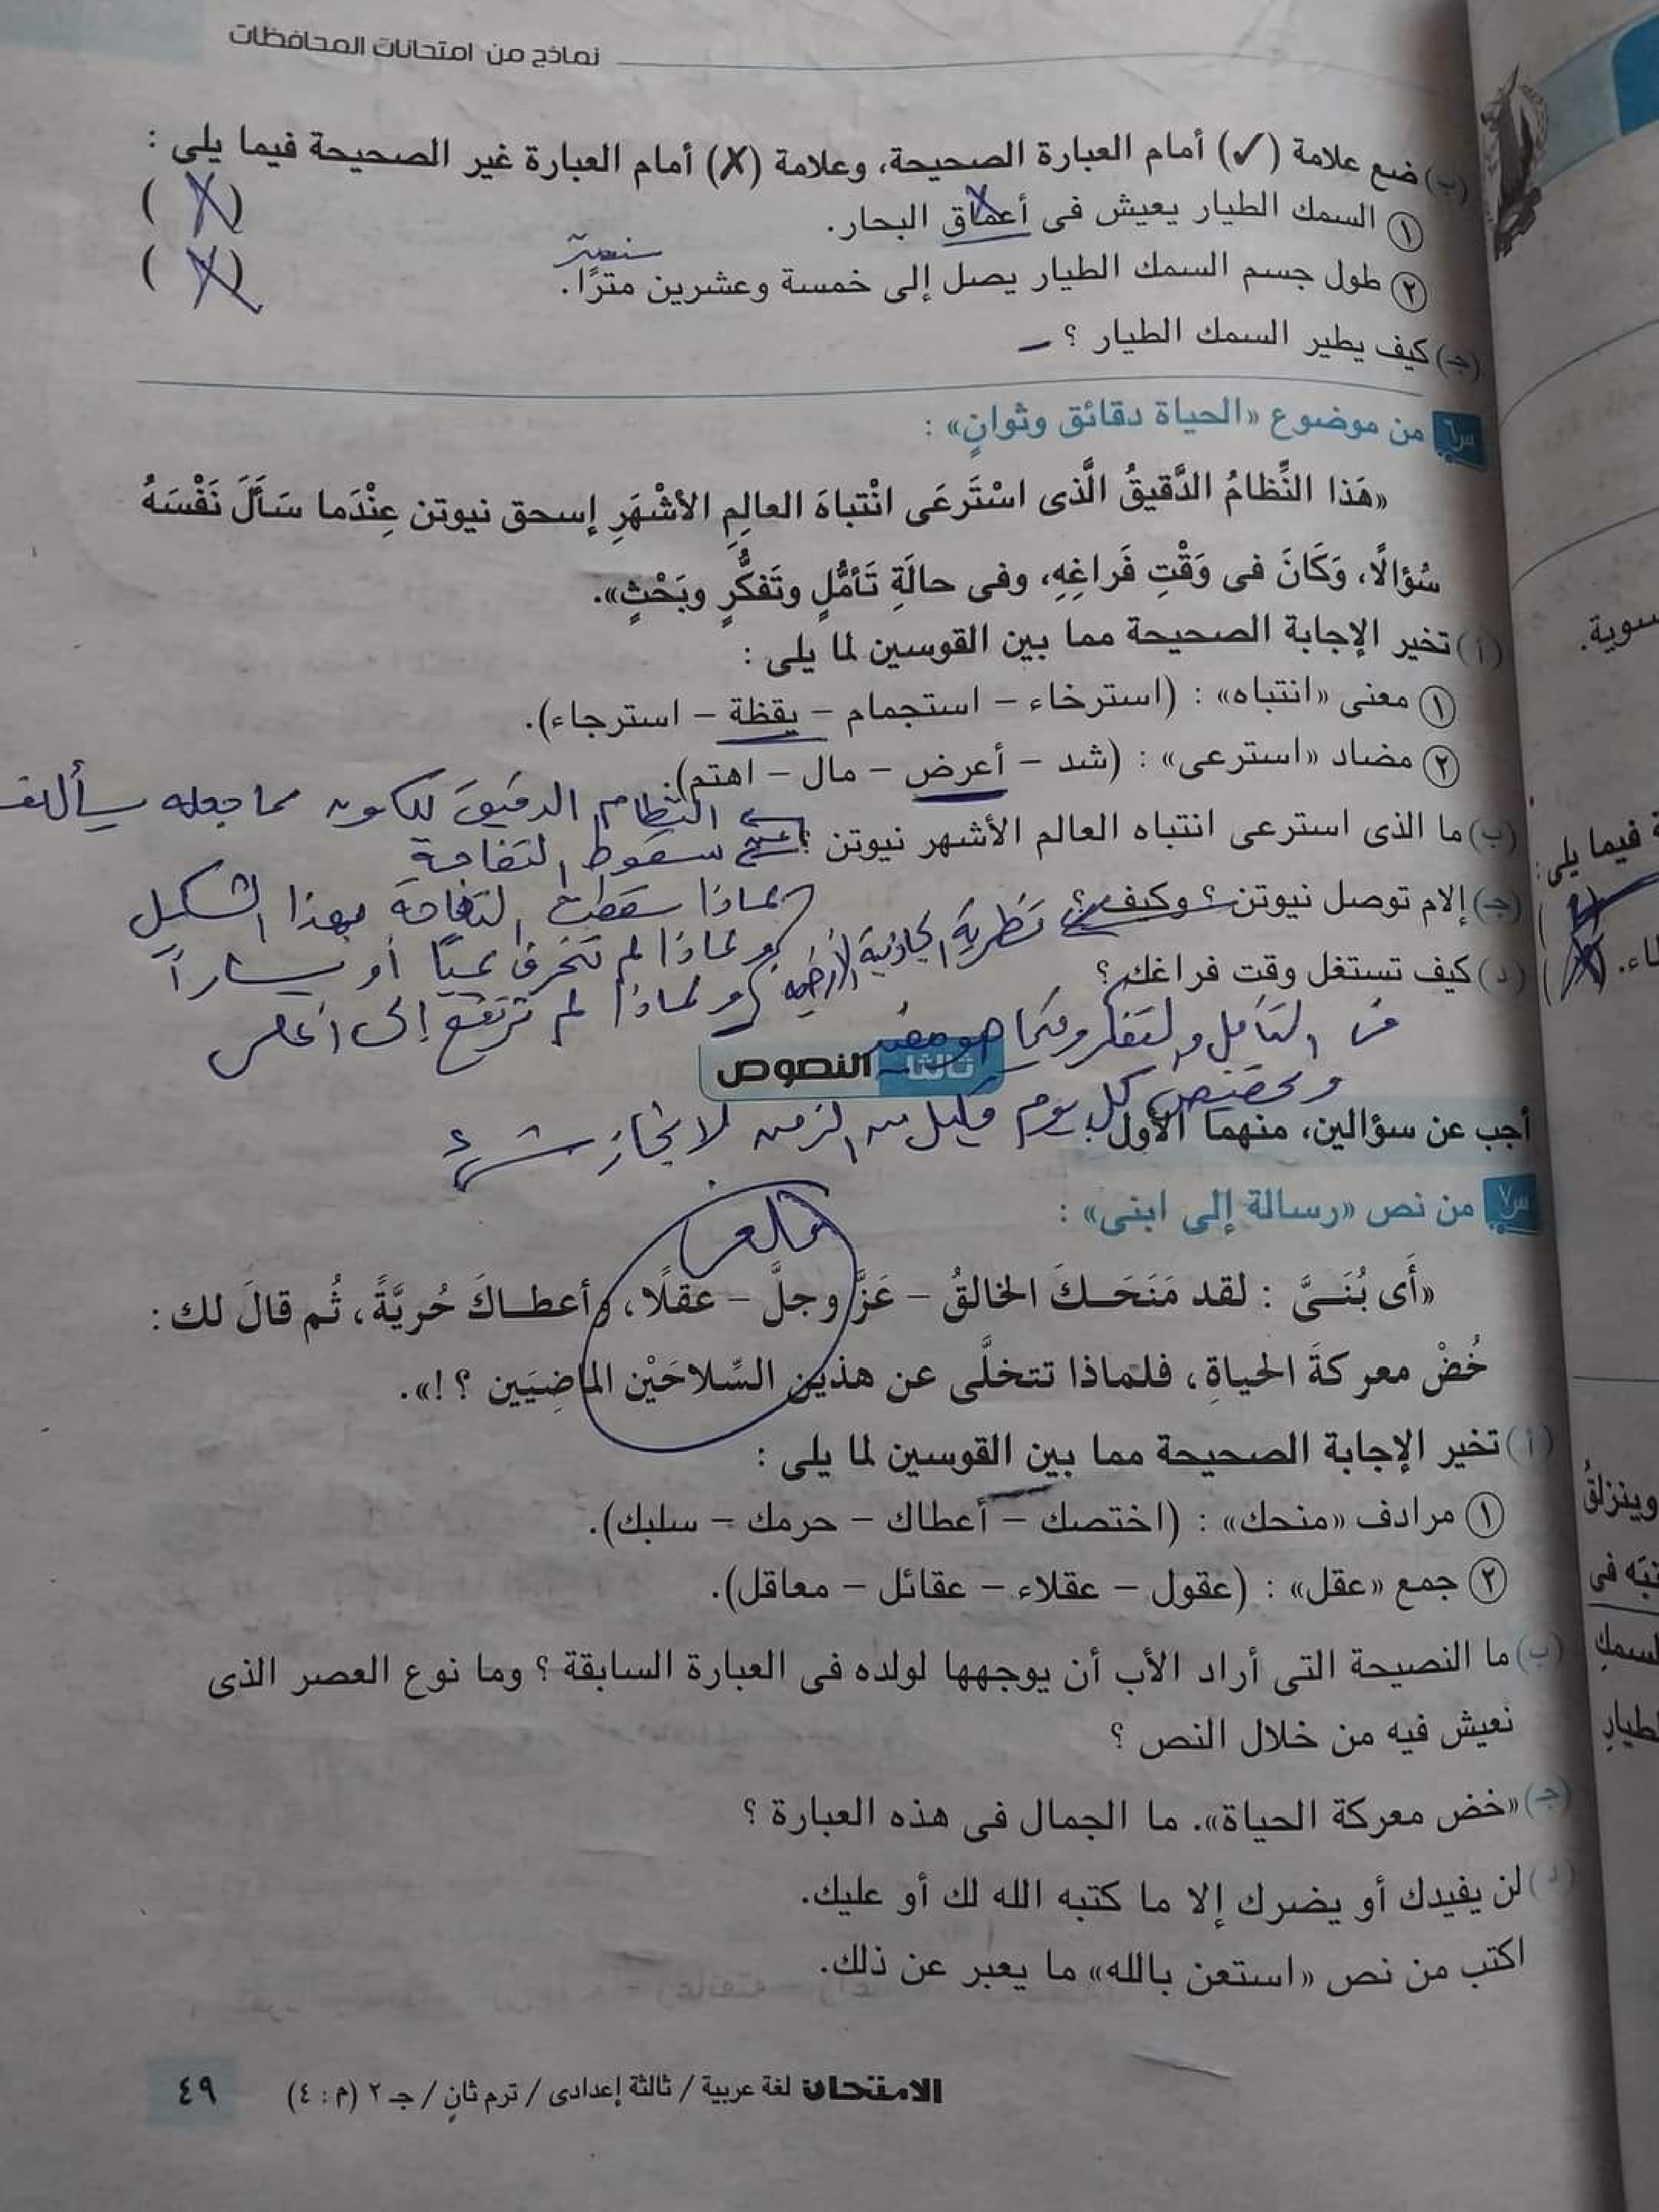 نماذج من امتحانات المحافظات
(ب) ضع علامة (✓) أمام العبارة الصحيحة، وعلامة (✗) أمام العبارة غير الصحيحة فيما يلى :
١ السمك الطيار يعيش فى أعماق البحار. (X)
٢ طول جسم السمك الطيار يصل إلى خمسة وعشرين مترًا. (X)
(جـ) كيف يطير السمك الطيار ؟
س٦ من موضوع «الحياة دقائق وثوانٍ» :
«هَذا النِّظامُ الدَّقيقُ الَّذى اسْتَرعَى انْتباهَ العالِمِ الأشْهَرِ إسحق نيوتن عِنْدَما سَأَلَ نَفْسَهُ
سُؤالًا، وَكَانَ فى وَقْتِ فَراغِهِ، وفى حالَةِ تَأمُّلٍ وتَفكُّرٍ وبَحْثٍ».
(أ) تخير الإجابة الصحيحة مما بين القوسين لما يلى :
١ معنى «انتباه» : (استرخاء – استجمام – يقظة – استرجاء).
٢ مضاد «استرعى» : (شد – أعرض – مال – اهتم).
(ب) ما الذى استرعى انتباه العالم الأشهر نيوتن ؟
النظام الدقيق للكون مما جعله يسأل
سقوط التفاحة
(جـ) إلام توصل نيوتن ؟ وكيف ؟
نظرية الجاذبية الأرضية
لماذا سقطت التفاحة بهذا الشكل
ولماذا لم تنحرف يمينًا أو يسارًا
ولماذا لم ترتفع إلى أعلى
(د) كيف تستغل وقت فراغك ؟
فى التأمل والتفكر وفيما هو مفيد
وتخصيص كل يوم قليل من الزمن لإنجاز شىء
ثالثًا النصوص
أجب عن سؤالين، منهما الأول :
س٧ من نص «رسالة إلى ابنى» :
«أَى بُنَـىَّ : لقد مَنَحَـكَ الخالقُ – عَزَّ وجلَّ – عقلًا، وأعطـاكَ حُريَّةً، ثُم قالَ لك :
خُضْ معركةَ الحياةِ، فلماذا تتخلَّى عن هذين السِّلاحَيْن الماضِيَين ؟!».
(أ) تخير الإجابة الصحيحة مما بين القوسين لما يلى :
١ مرادف «منحك» : (اختصك – أعطاك – حرمك – سلبك).
٢ جمع «عقل» : (عقول – عقلاء – عقائل – معاقل).
(ب) ما النصيحة التى أراد الأب أن يوجهها لولده فى العبارة السابقة ؟ وما نوع العصر الذى
نعيش فيه من خلال النص ؟
(جـ) «خض معركة الحياة». ما الجمال فى هذه العبارة ؟
(د) لن يفيدك أو يضرك إلا ما كتبه الله لك أو عليك.
اكتب من نص «استعن بالله» ما يعبر عن ذلك.
الامتحان لغة عربية / ثالثة إعدادى / ترم ثانٍ / جـ ٢ (م : ٤) ٤٩
سوية.
فيما يلى :
وينزلقُ
السمكِ